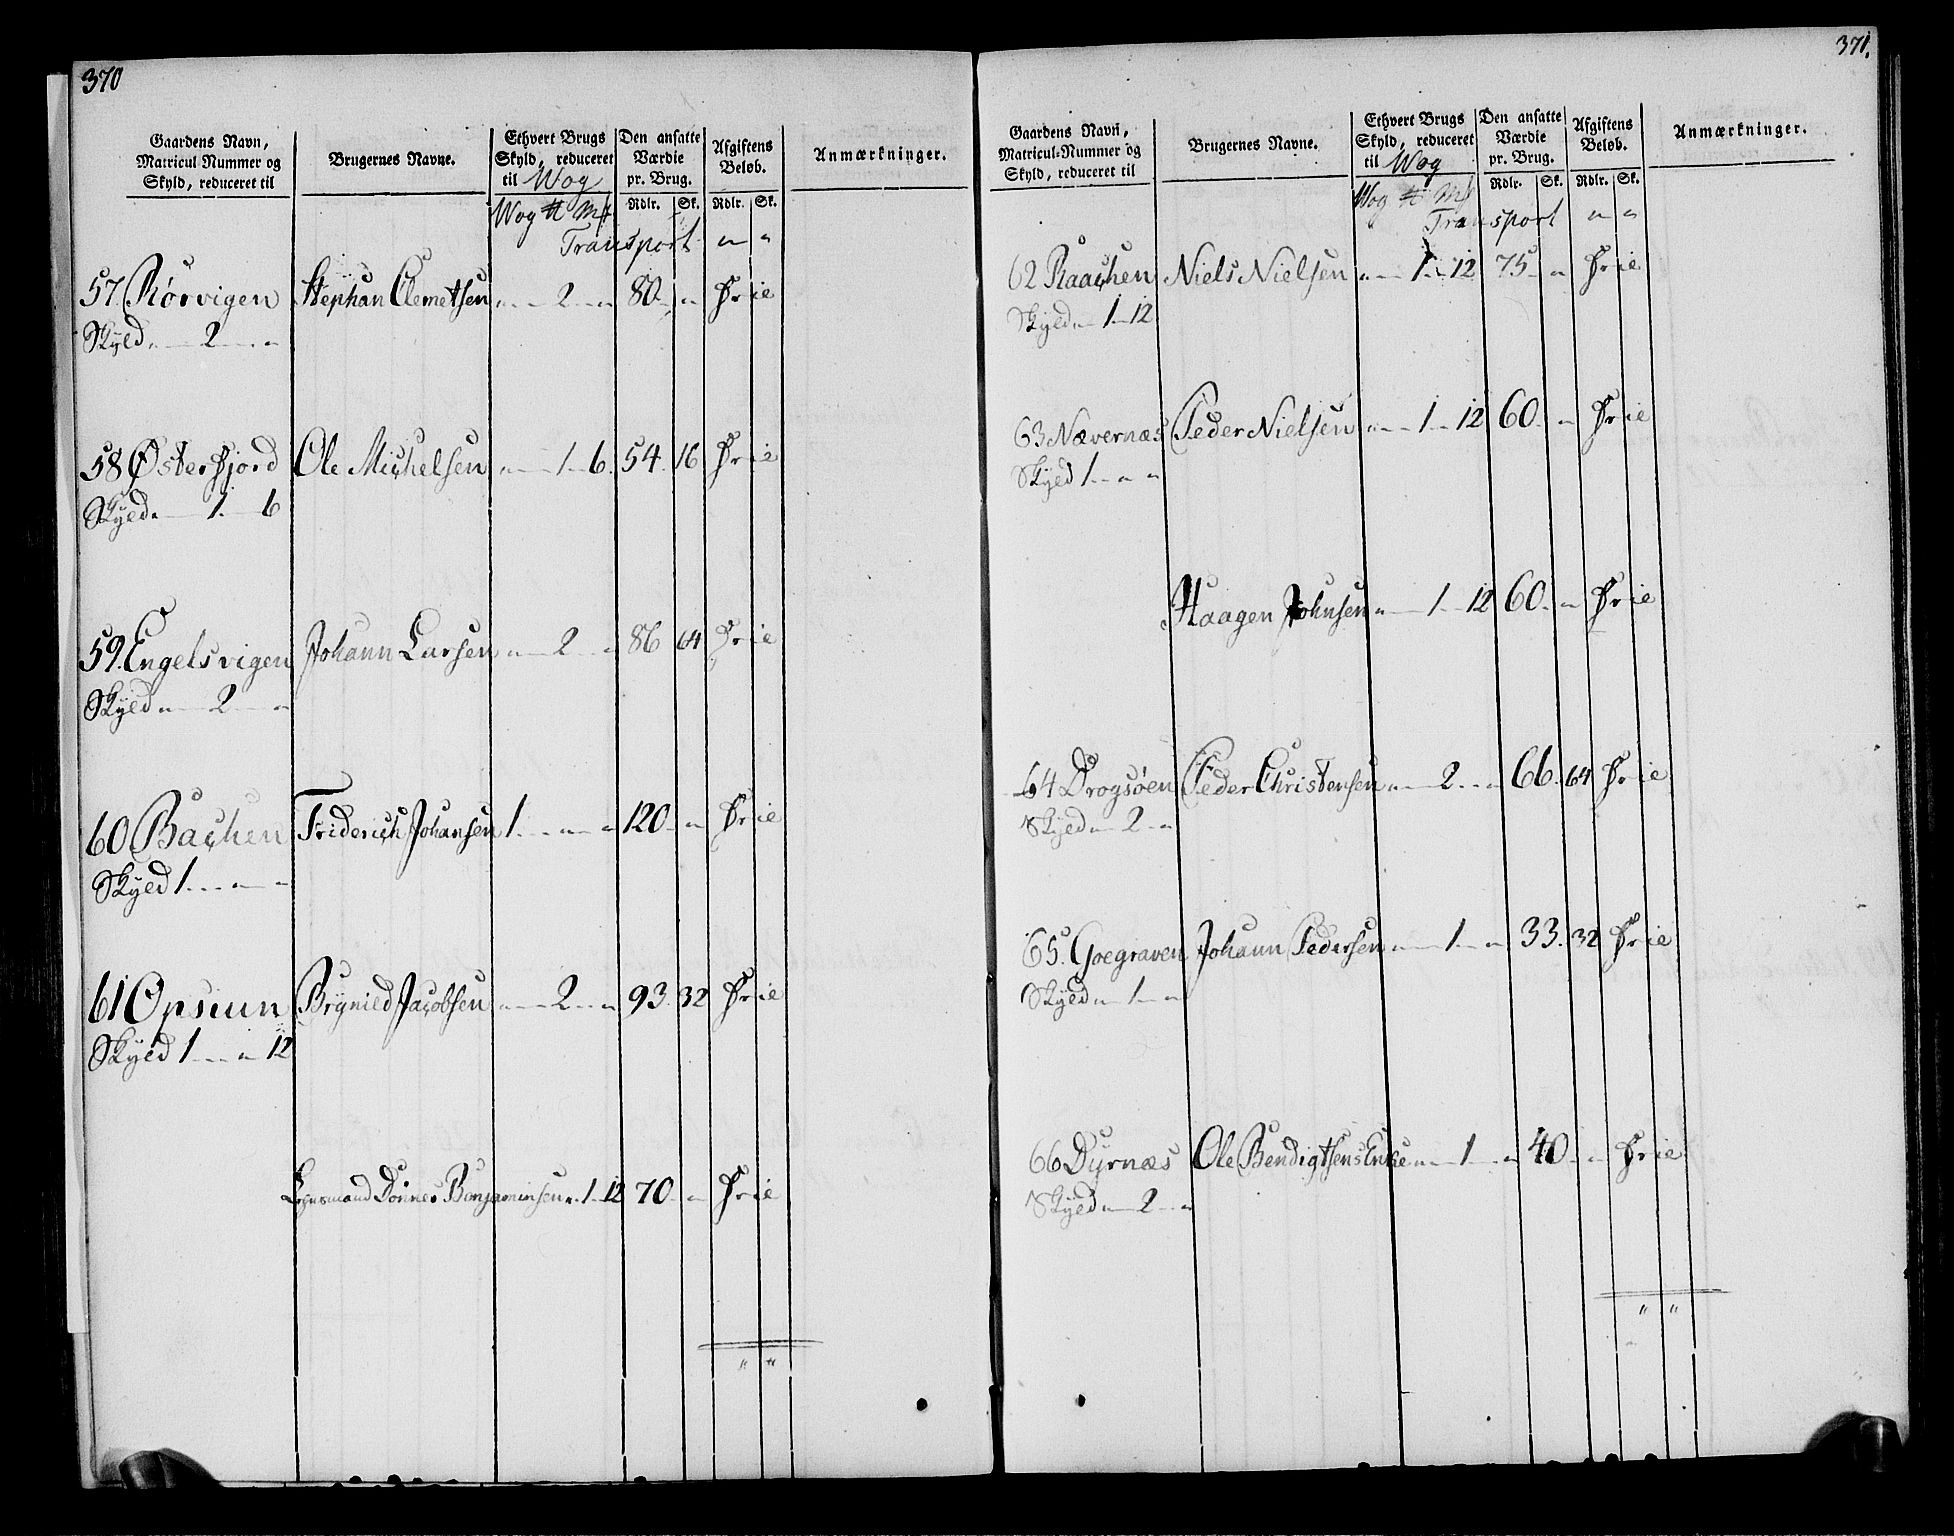 370
Gaardens Navn,
Matricul Nummer og
Skyld, reduceret til
Brugernes Navne.
Ethvert Brugs
Skyld, reduceret
til Wog
Den ansatte
Værdie
pr. Brug.
Afgiftens
Beløb.
Anmærkninger.
Wog ℔ Mk
Rdlr. Sk. Rdlr. Sk.
Transport " "
57. Rørvigen Stephan Clemetsen " 2 " 80 " Frie
Skyld " 2 "
58 Østerfjord Ole Michelsen " 1 6 54 16 Frie
Skyld " 1 6
59. Engelsvigen Johann Larsen " 2 " 86 64 Frie
Skyld " 2 "
60 Bachen Friderich Johansen 1 " " 120 " Frie
Skyld 1 " "
61 Opsiun Brynild Jacobsen " 2 " 93 32 Frie
Skyld 1 " 12
Lensmand Dønnes Benjaminsen " 1 12 70 " Frie
" "
371.
Gaardens Navn,
Matricul-Nummer og
Skyld, reduceret til
Brugernes Navne.
Ethvert Brugs
Skyld, reduceret
til Wog
Den ansatte
Værdie
pr. Brug.
Afgiftens
Beløb.
Anmærkninger.
Wog ℔ Mk
Rdlr. Sk. Rdlr. Sk.
Transport " "
62 Raachen Niels Nielsen " 1 12 75 " Frie
Skyld " 1 12
63 Nævernæs Peder Nielsen " 1 12 60 " Frie
Skyld 1 " "
Haagen Johnsen " 1 12 60 " Frie
64 Drogsøen Peder Christensen " 2 " 66 64 Frie
Skyld " 2 "
65. Goegraven Johann Pedersen " 1 " 33 32 Frie
Skyld " 1 "
66 Dyrnæs Ole Bendigtsens Enke " 1 " 40 " Frie
Skyld " 2 "
" "